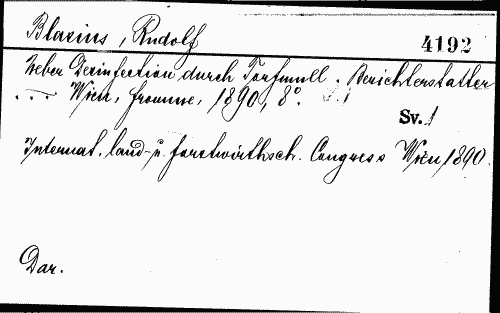 Blasius, Rudolf
4192
Ueber Desinfection durch Torfmull. Berichterstatter
.... Wien, Fromme, 1890, 8°.
Sv. 1
Internat. land- u. forstwirthsch. Congress Wien 1890.
Dar.